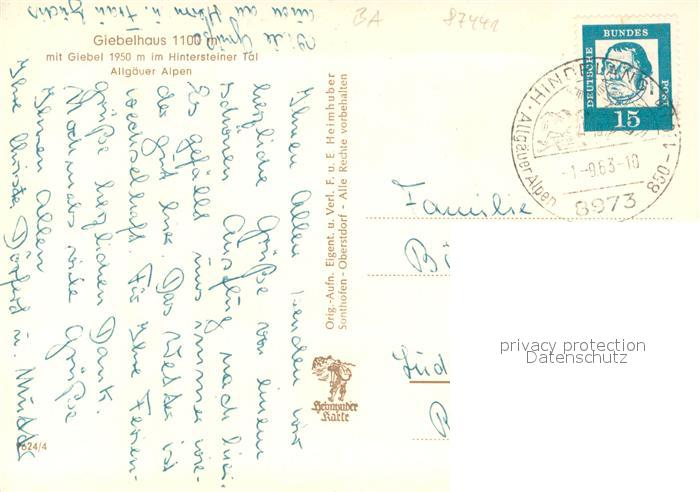 BA 87441
Giebelhaus 1100 m
mit Giebel 1950 m im Hintersteiner Tal
Allgäuer Alpen
Ihnen Allen senden wir
herzliche Grüße von einem
schönen Ausflug nach hier.
Es gefällt uns immer wie-
der gut hier. Das Wetter ist
wechselhaft. Für Ihre Ferien-
grüße herzlichen Dank.
Nochmals viele Grüße
Ihnen Allen
Ihre
u.
Viele Grüße
auch an Herrn u. Frau
Orig.-Aufn. Eigent. u. Verl. F. u. E. Heimhuber
Sonthofen - Oberstdorf - Alle Rechte vorbehalten
Heimhuber
Karte
DEUTSCHE BUNDES POST
15
HINDELANG
Allgäuer Alpen
63-18
8973
850-1
Familie
privacy protection
Datenschutz
624/4